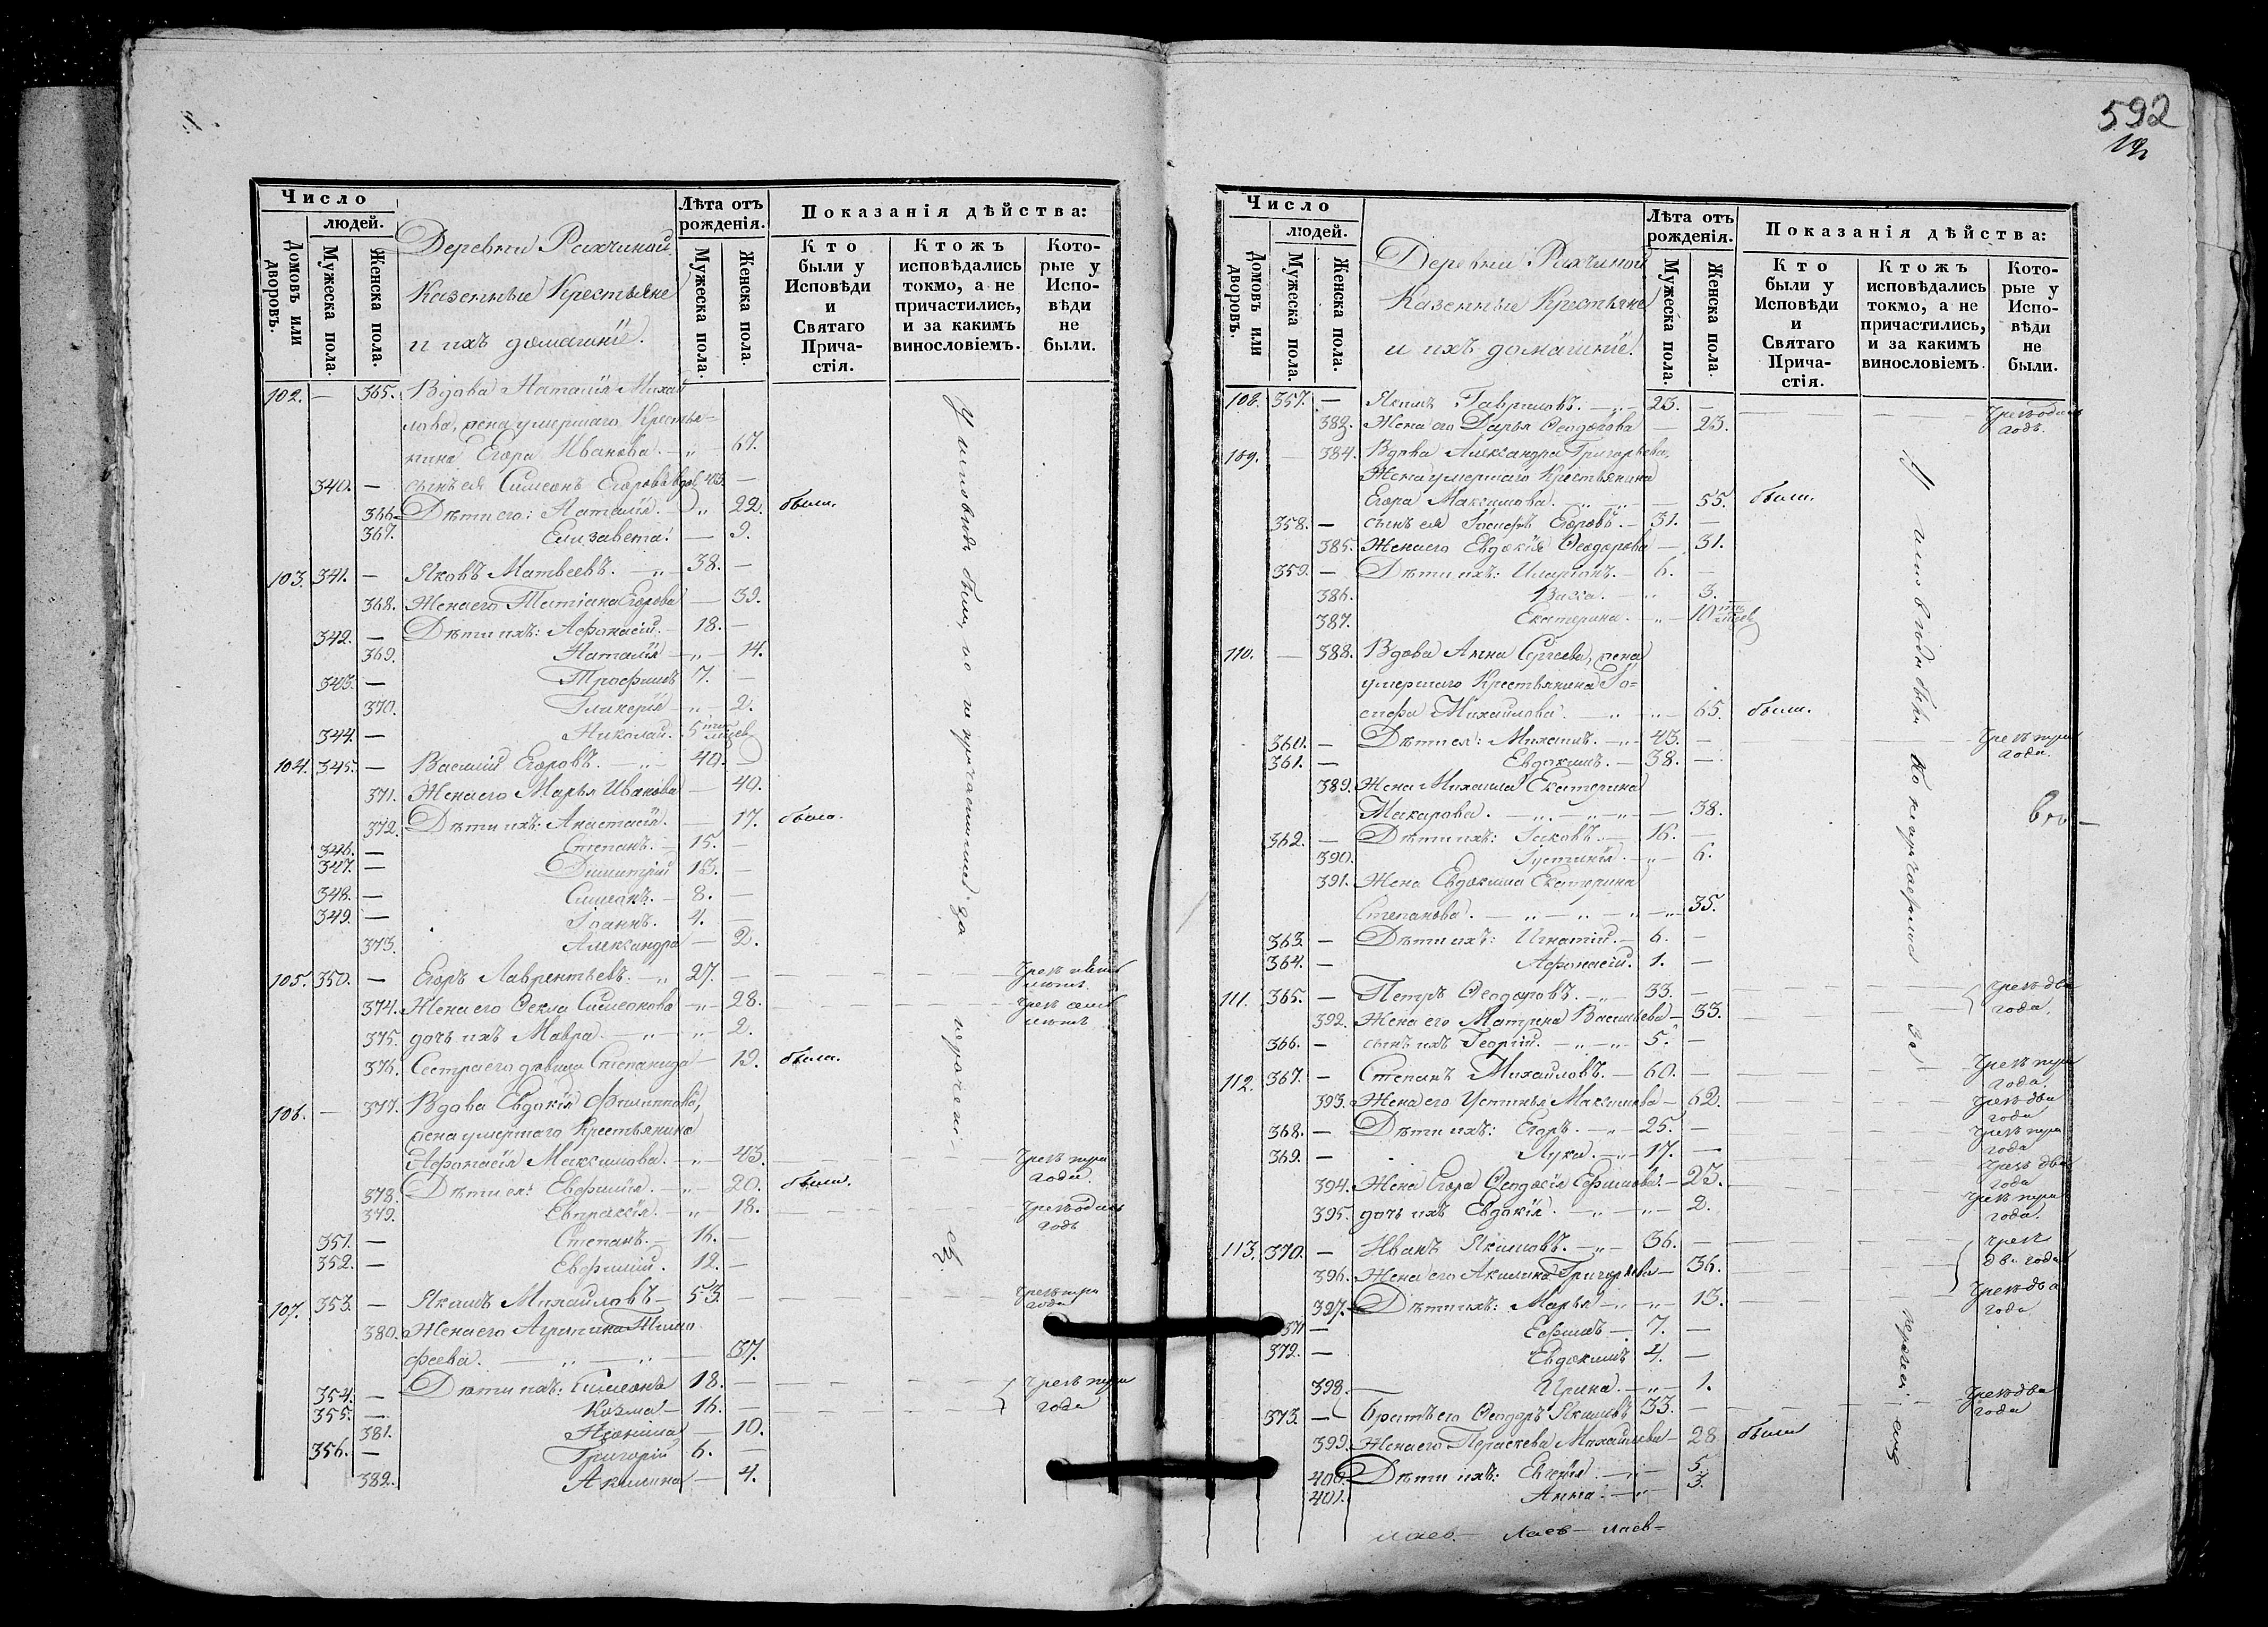 592
Число
людей.
Домовъ или дворовъ.
Мужеска пола.
Женска пола.
Деревни Рахчиной
Казенные Крестьяне
и ихъ домашніе.
Лѣта отъ рожденія.
Мужеска пола.
Женска пола.
Показанія дѣйства:
Кто были у Исповѣди и Святаго Прича-стія.
Ктожъ исповѣдались токмо, а не причастились, и за какимъ винословіемъ.
Кото-рые у Испо-вѣди не были.
102. — 365. Вдова Наталія Михай
лова, жена умершаго Крестья=
нина Егора Иванова. — „ — 67.
340. — сынъ ея Симеонъ Егоровъ вдов. 43. —
366. Дѣти его: Наталія. — „ 22. были.
367. Елизавета. — 9.
103. 341. — Яковъ Матвеевъ. — „ — 38. —
368. Жена его Татіана Егорова — 39.
342. — Дѣти ихъ: Афанасій. — 18. —
369. Наталія — „ — 14.
343. — Трофимъ 7. —
370. Гликерія — „ — 2.
344. — Николай. 5
104. 345. — Василій Егоровъ. — „ — 40. —
371. Жена его Марья Иванова — 40.
372. Дѣти ихъ: Анастасія. — 17. была.
346. — Степанъ. — 15. —
347. — Димитрій 13. —
348. — Симеонъ. — 8. —
349. — Іоаннъ. 4. —
373. Александра — 2.
105. 350. — Егоръ Лаврентьевъ. — „ 27. —
374. Жена его Ѳекла Симеонова — „ — 28.
375. дочь ихъ Мавра. — „ — „ — 2.
376. Сестра его дѣвица Степанида — 19. была.
106. — 377. Вдова Евдокія Филиппова,
жена умершаго Крестьянина
Афанасія Максимова. — „ — 43. чрезъ три года.
378. Дѣти ея: Евфимія. — „ — 20. были.
379. Евпраксія. — „ — 18. чрезъ одинъ годъ
351. — Степанъ. — 16. —
352. — Евфимій. 12. —
107. 353. — Якимъ Михайловъ — 53. — чрезъ три года
380. Жена его Агрипина Тимо
феева. — „ — „ — 37.
354. — Дѣти ихъ: Симеонъ 18. — чрезъ три
355. — Козма — 16. — года
381. — 10.
356. — Григорій 6. —
382. Акилина — 4.
У исповѣди были, но не причастились за
Число
людей.
Домовъ или дворовъ.
Мужеска пола.
Женска пола.
Деревни Рахчиной
Казенные Крестьяне
и ихъ домашніе.
Лѣта отъ рожденія.
Мужеска пола.
Женска пола.
Показанія дѣйства:
Кто были у Исповѣди и Святаго Прича-стія.
Ктожъ исповѣдались токмо, а не причастились, и за какимъ винословіемъ.
Кото-рые у Испо-вѣди не были.
108. 357. — Якимъ Гавриловъ. — „ — 23. — чрезъ одинъ годъ.
383. Жена его Дарья Ѳеодорова — 23.
109. — 384. Вдова Александра Григорьева,
Жена умершаго Крестьянина
Егора Максимова. — „ — 55. были.
358. — сынъ ея Іосифъ Егоровъ. — 31. —
385. Жена его Евдокія Ѳеодорова — 31.
359. — Дѣти ихъ: Иларіонъ. — 6. —
386. Васса. — „ 3.
387. Екатерина. — „ — 10
110. — 388. Вдова Анна Сергеева, жена
умершаго Крестьянина Іо=
сифа Михайлова. — „ — „ — 65. были.
360. — Дѣти ея: Михаилъ. — „ — 43. — чрезъ три года.
361. — Евдокимъ. — 38. —
389. Жена Михаила Екатерина
Макарова. — „ — „ — „ — 38.
362. — Дѣти ихъ: Іаковъ. — 16. —
390. Іустинія. — „ — 6.
391. Жена Евдокима Екатерина
Степанова. — „ — „ — „ — 35.
363. — Дѣти ихъ: Игнатій. — 6. —
364. — Афанасій. 1. —
111. 365. — Петръ Ѳеодоровъ. — „ — 33. — чрезъ два
392. Жена его Матрена Васильева — 33. года.
366. — сынъ ихъ Георгій. — „ — „ — 5. —
112. 367. — Степанъ Михайловъ. — 60. — чрезъ три года.
393. Жена его Устинья Максимова — 62. чрезъ два года
368. — Дѣти ихъ: Егоръ. — „ — 25. — чрезъ три года
369. — Лука. — „ — 17. — чрезъ два года
394. Жена Егора Ѳеодосія Ефимова. — 23. чрезъ три года.
395. дочь ихъ Евдокія. — „ — „ — 2.
113. 370. — Иванъ Якимовъ. — „ — 36. — чрезъ
396. Жена его Акилина Григорьева — 36. два года
397. Дѣти ихъ: Марья — „ — „ — 13. чрезъ два года
371 — Ефимъ — 7. —
372. — Евдокимъ 4. —
398. Ирина. — „ — 1.
373. — братъ его Ѳеодоръ Якимовъ 33. — чрезъ два года
399. Жена его Параскева Михайлова — 28 были
400. Дѣти ихъ: Евгенія. — „ — 5.
401. Анна. — „ — 3.
У исповѣди были но не причастились за